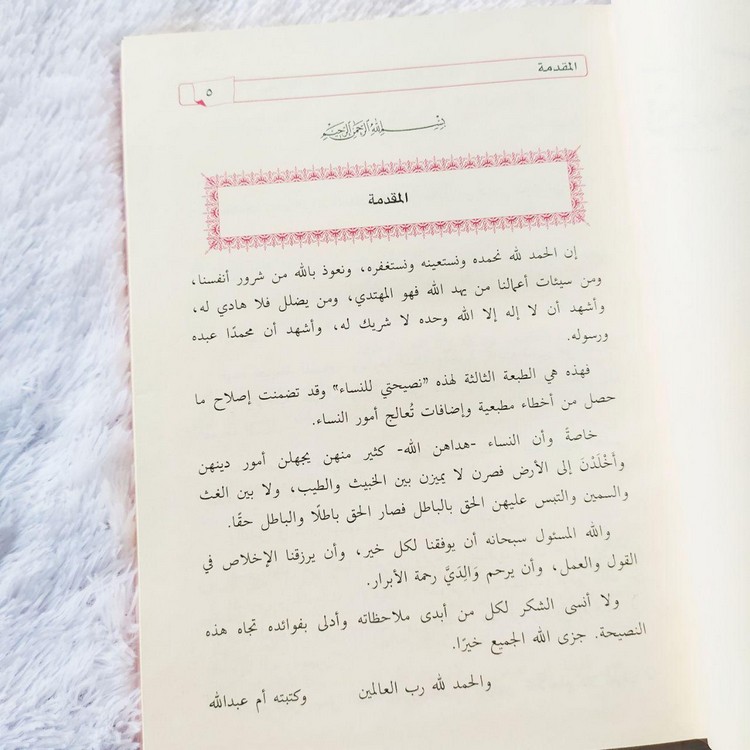 المقدمة
٥
بسم الله الرحمن الرحيم
المقدمة
إن الحمد لله نحمده ونستعينه ونستغفره، ونعوذ بالله من شرور أنفسنا،
ومن سيئات أعمالنا من يهد الله فهو المهتدي، ومن يضلل فلا هادي له،
وأشهد أن لا إله إلا الله وحده لا شريك له، وأشهد أن محمدًا عبده
ورسوله.
فهذه هي الطبعة الثالثة لهذه "نصيحتي للنساء" وقد تضمنت إصلاح ما
حصل من أخطاء مطبعية وإضافات تُعالج أمور النساء.
خاصةً وأن النساء -هداهن الله- كثير منهن يجهلن أمور دينهن
وأَخْلَدْنَ إلى الأرض فصرن لا يميزن بين الخبيث والطيب، ولا بين الغث
والسمين والتبس عليهن الحق بالباطل فصار الحق باطلًا والباطل حقًا.
والله المسئول سبحانه أن يوفقنا لكل خير، وأن يرزقنا الإخلاص في
القول والعمل، وأن يرحم وَالِدَيَّ رحمة الأبرار.
ولا أنسى الشكر لكل من أبدى ملاحظاته وأدلى بفوائده تجاه هذه
النصيحة. جزى الله الجميع خيرًا.
والحمد لله رب العالمين وكتبته أم عبدالله